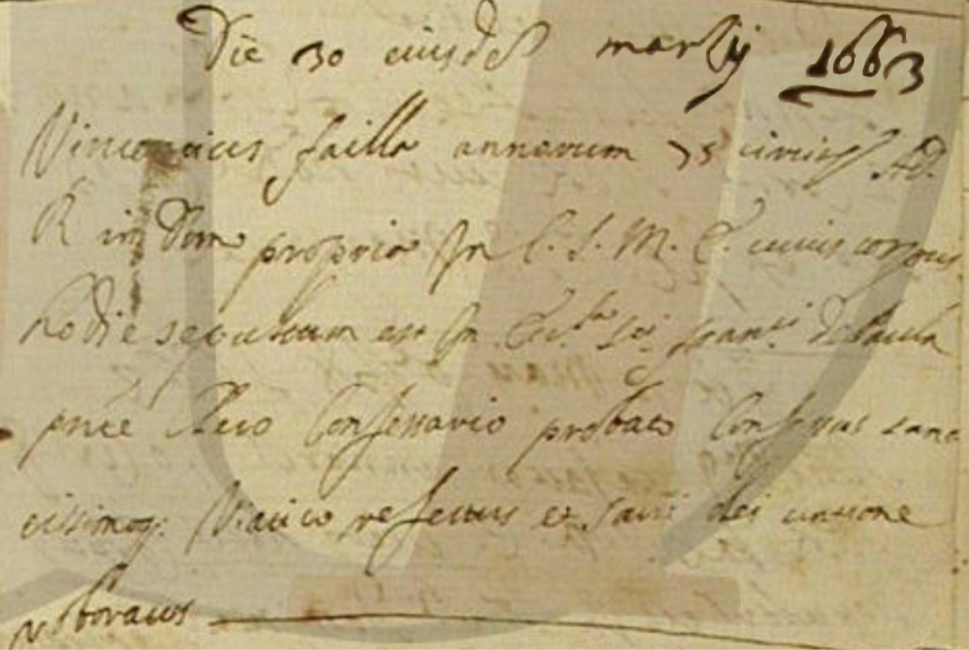 Die 30 eiusde martij 1663
Vincencius failla annorum 75 circiter A.D.
R in domo propria In C. S. M. E. cuius corpus
hodie sepultum est In Ecc.ᵃ S.ⁱ fran.ᶜⁱ de Paula
pnte Clero Confessario probato Confessus sanc
tissimoq: Viatico refectus et sacri olei untione
roboratus